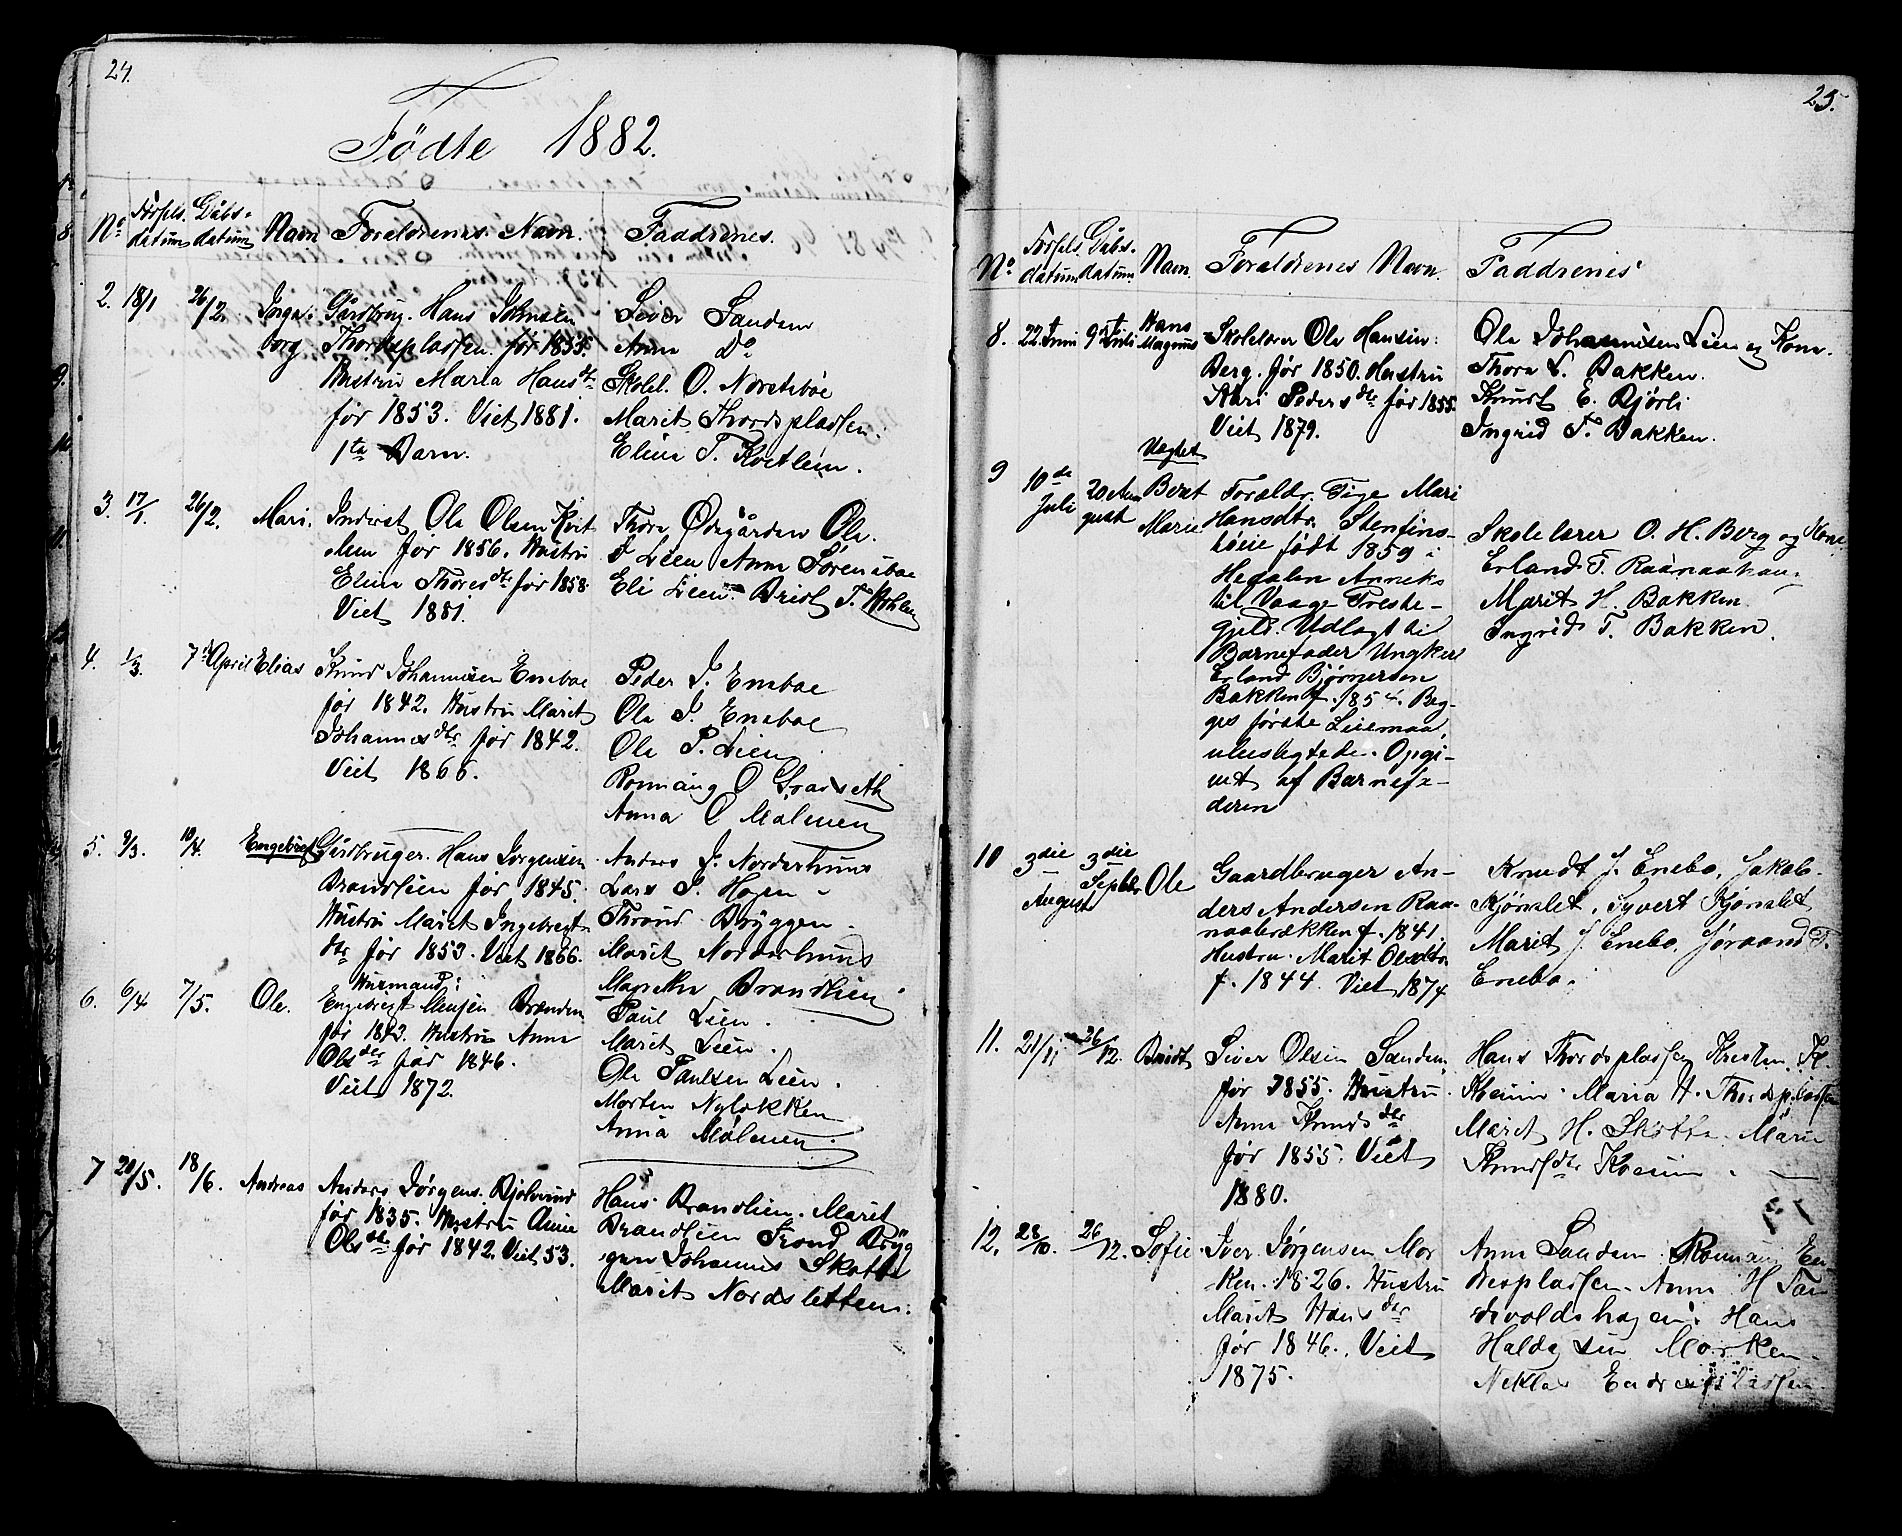 24.
Födte 1882.
No Förs[els] datum Dåbs-datum Navn Forældrenes Navn. Faddrenes.
2. 18/1 26/2. Inga-
borg
Gårdbrug. Hans Johnsen
Thordsplassen. før 1855.
Hustru Maria Hans dtr
før 1853. Viet 1881.
1te Barn.
Siver Sanden
Anna Do
Skolel. O. Norstebøe
Marit Thordsplassen.
Eline T. Kvitlein.
3. 17/1. 26/2. Mari.
Inderst Ole Olsen Kvit
lein før 1856. Hustru
Eline Thores dtr før 1858.
Viet 1881.
Thore Ödegården Ole.
Lien Anne
Eli Lien. Bridt T.
4. 1/3. 7de April Elias
Knud Johannesen Eneboe
før 1842. Hustru Marit
Johannes dtr før 1842.
Viet 1866.
Peder J. Eneboe
Ole J. Eneboe
Ole P. Lien
Ronnaug O
Anna O Mölmen
5. 9/3. 10/4. Engebrigt
Gårdbruger. Hans Jorgensen
Brandlien før 1845.
Hustru Marit Ingebregt
dtr før 1853. Viet 1866.
Anders J. Norderhuus
Lars S. Hagen
Thrond Bryggen.
Marit Norderhuus
Magrethe Brandlien
6. 6/4 7/5. Ole.
Husmand:
Engebrigt Brænden
før 1843. Hustru Anne
Ols der før 1846.
Viet 1872.
Paul Lien.
Marit Lien.
Ole Paulsen Lien.
Morten Nylökken
Anna Mölmen.
7 20/5. 18/6. Andreas
Anders Jörgens. Bjölverud
før 1835. Hustru Anne
Ols dt før 1842. Viet 53.
Hans Brandlien. Marit
Brandlien Trond Bryg
gen Johannes Skotte
Marit Nordsletten.
25.
No. Försels datum Dåbs-datum. Navn. Forældrenes Navn. Faddrenes
8. 22 Juni 9 Juli Hans
Magnus
Skolelærer Ole Hansen:
Berg. før 1850. Hustru
Kari Peders dtr før 1855.
Viet 1879.
Ole Johannesen Lien og Kone.
Thora L. Bakken.
Knut E. Bjørli
Ingrid T. Bakken.
9 10de
Juli 20 Au-
gust Uægtet
Berit
Marie
Foraldr. Pige Mari
Hansdtr. Stenfins-
høie født 1859 i
Hedalen Anneks
til Vaage Præste-
gjeld. Udlagt til
Barnefader Ungkarl
Erland Bjørnersen
Bakken f. 1854. Beg-
ges første Leiemaal,
ubeslægtede. Opgi-
vet af Barnefa-
deren
Skolelærer O. H. Berg og Kone
Erland T. Raanaahaug
Marit H. Bakken
Ingrid T. Bakken.
10 3die
August 3die
Septbr Ole
Gaardbruger An-
ders Andersen Raa-
naabrækken f. 1841.
Hustru. Marit Olsdtr.
f. 1844. Viet 1874
Knudt J. Enebo, Jakob
Kjönslet, Syvert Kjönslet
Marit J. Enebo, Jøraand T.
Enebo.
11. 21/11 26/12. Bridt
Siver Olsen Sanden,
før 1855. Hustru
Anne Knuds der
før 1855. Viet
1880.
Hans Thordsplassen Kresten K.
Maria H. Thordsplassen
Marit H. Skotte. Mari
Knuds dtr
12. 28/10. 26/12. Sofie.
Iver Jörgensen Mor
ken. 1826. Hustru
Marit Hans der
før 1846. Viet
1875.
Anne Sanden Ronnau En
dresplassen. Anne H San
devoldshagen: Hans
Haldo sen Morken
Endresplassen